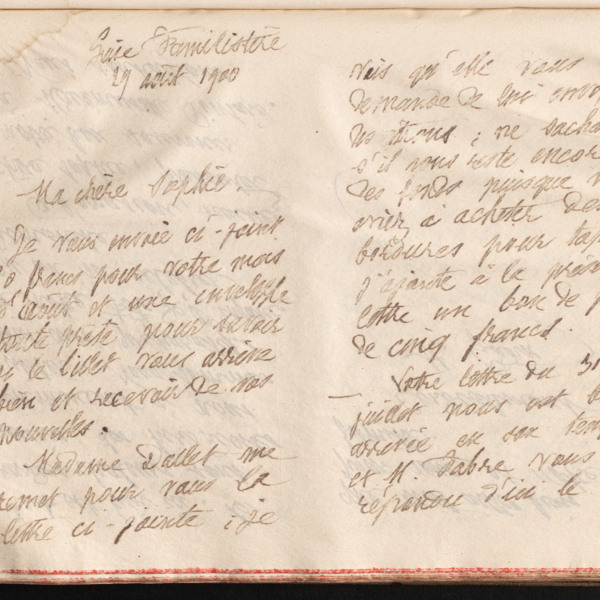 Guise Familistère
29 août 1900
Ma chère Sophie
Je vous envoie ci-joint
francs pour votre mois
d'août et une enveloppe
toute prête pour savoir
si le billet vous arrive
bien et recevoir de vos
nouvelles.
Madame Dallet me
remet pour vous la
lettre ci-jointe ; je
vois qu'elle vous
demande de lui
; ne
s'il vous reste encore
des fonds puisque
à acheter des
bordures pour
j'ajoute à la
lettre un bon de
de cinq francs.
Votre lettre du 31
juillet nous est
arrivée en son
et M. Fabre vous
répondu d'ici le